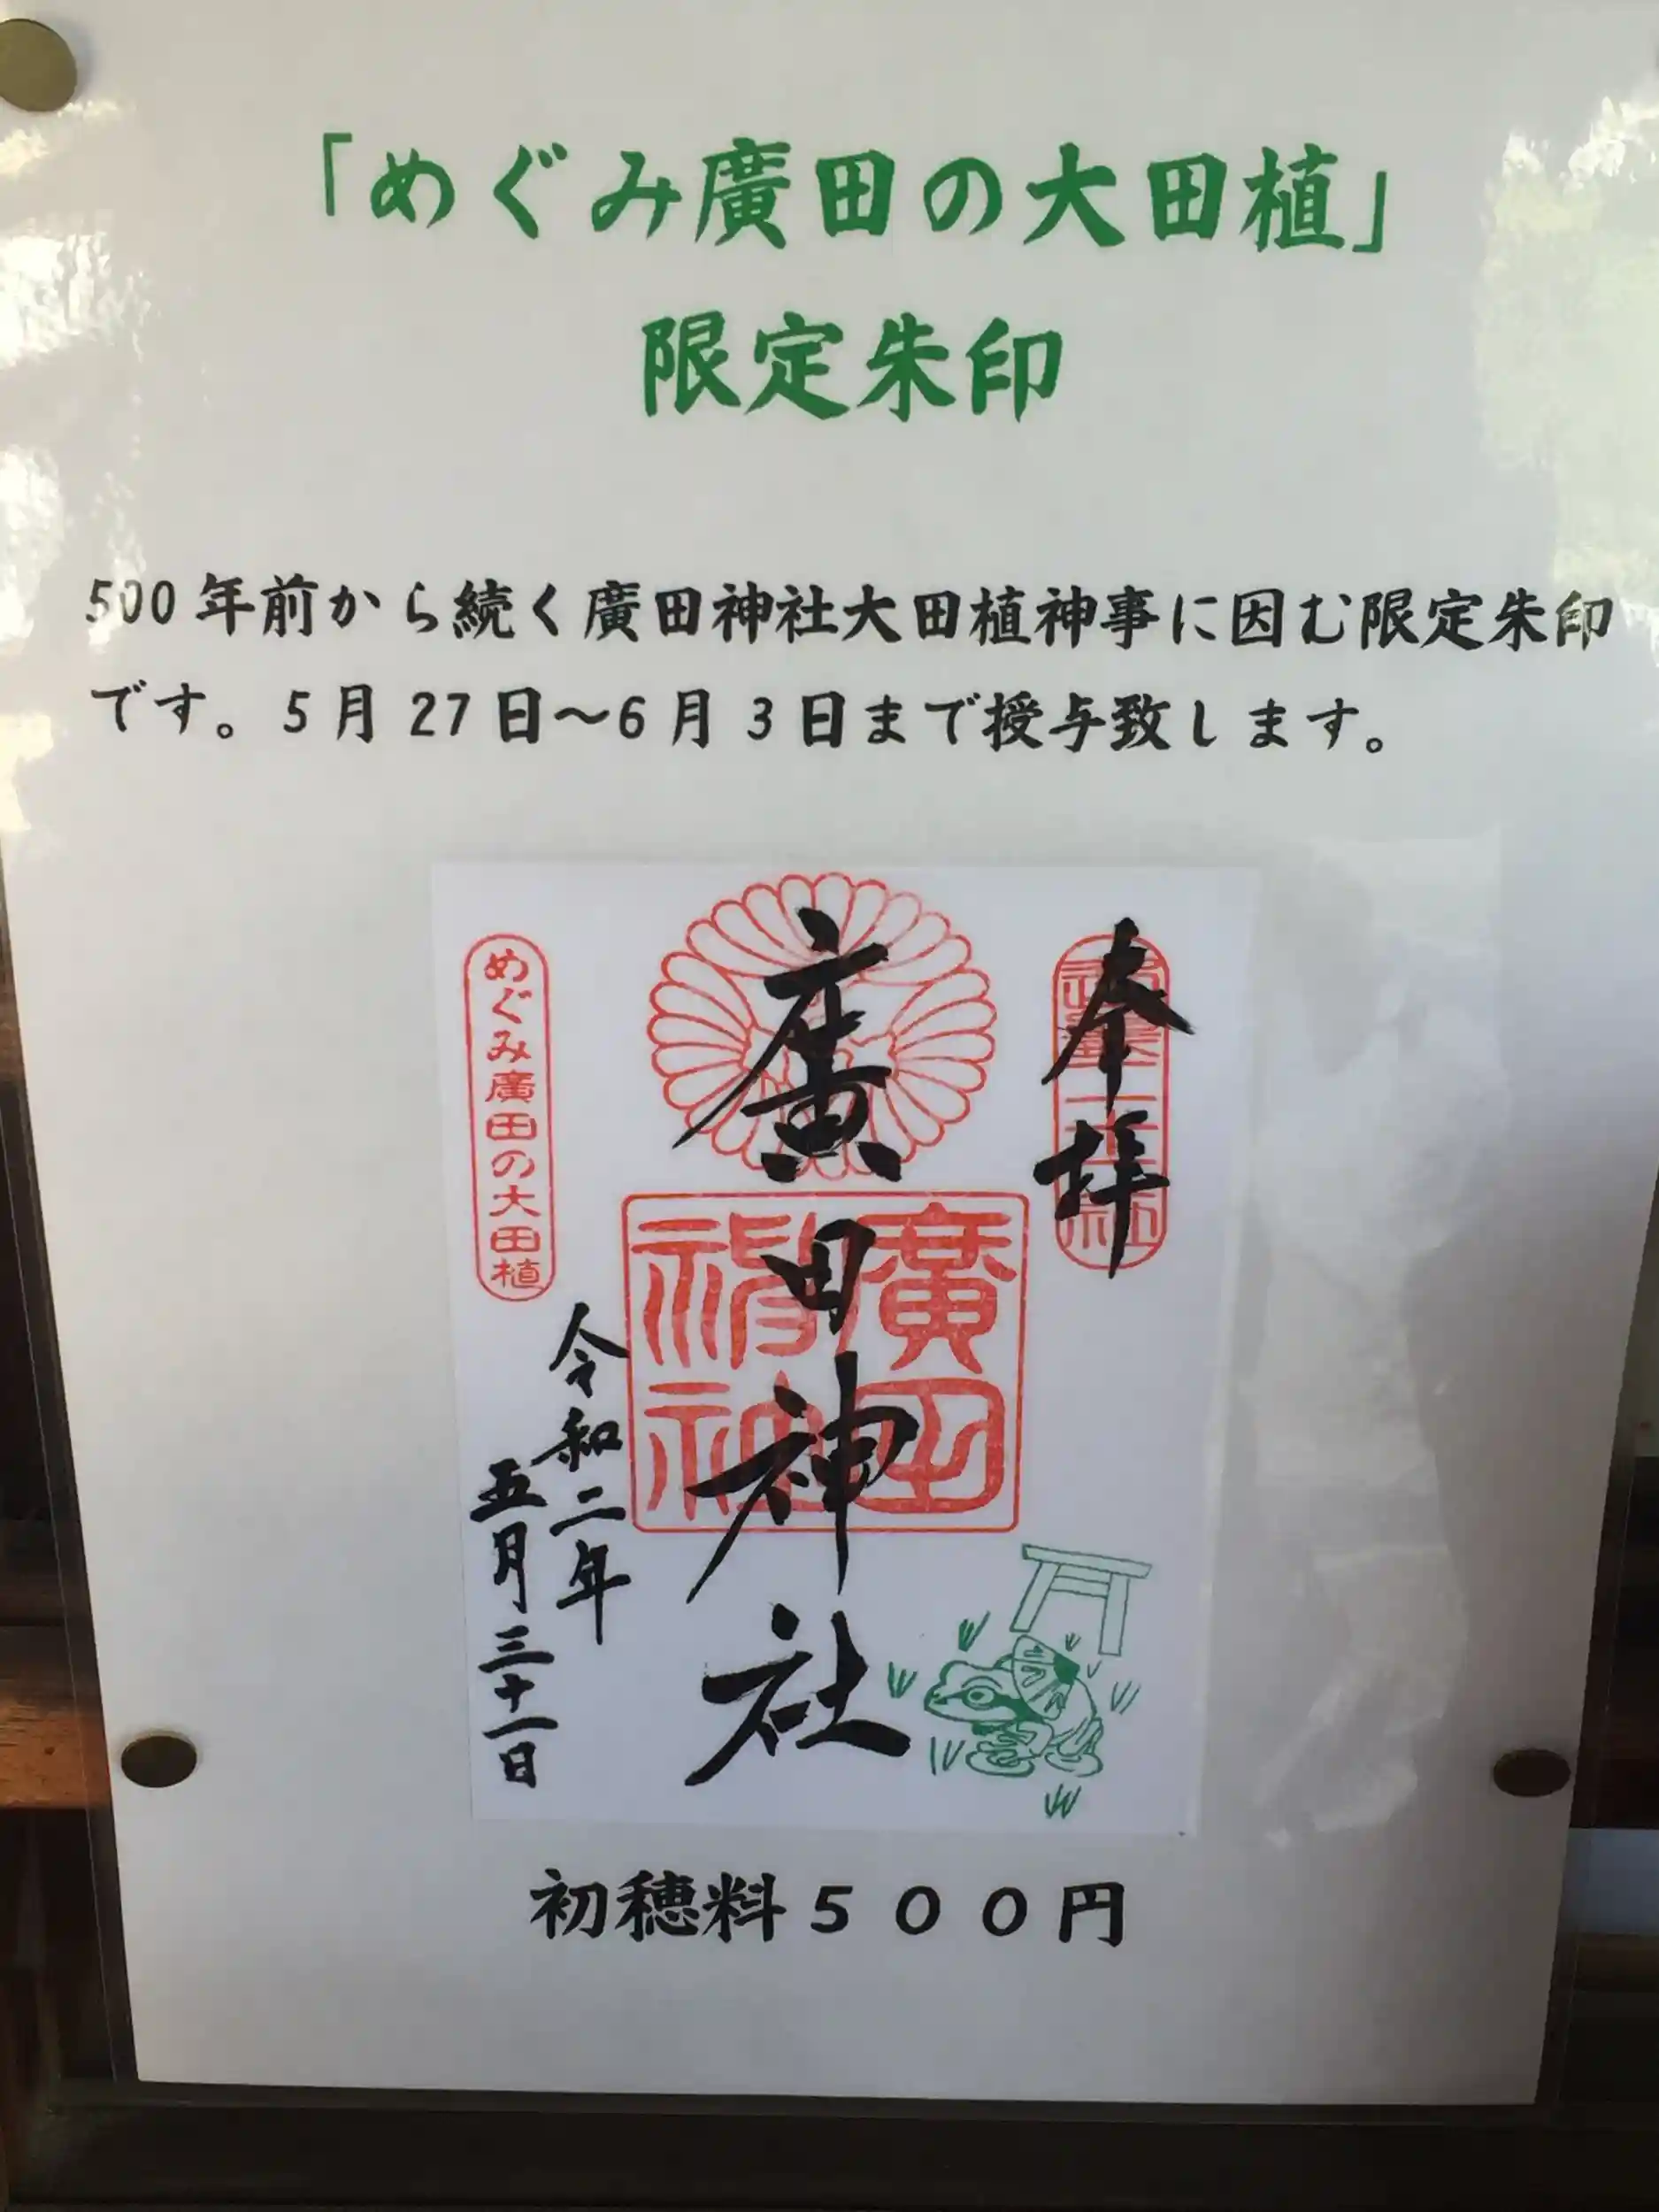 「めぐみ廣田の大田植」
限定朱印
500年前から続く廣田神社大田植神事に因む限定朱印
です。5月27日～6月3日まで授与致します。
奉拝
廣田神社
廣田
神社
めぐみ廣田の大田植
令和二年
五月三十一日
初穂料５００円